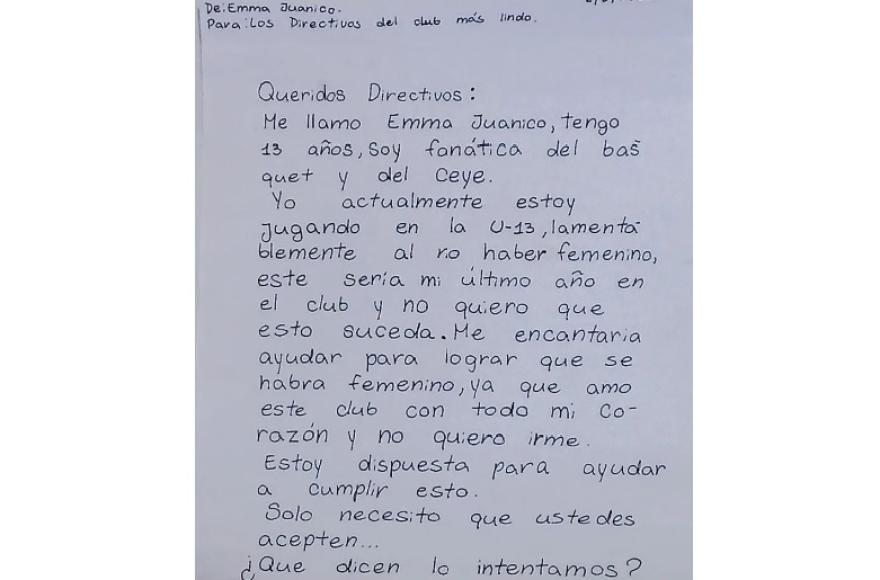 De: Emma Juanico.
Para: Los Directivos del club más lindo.
Queridos Directivos:
Me llamo Emma Juanico, tengo
13 años, soy fanática del bas
quet y del Ceye.
Yo actualmente estoy
jugando en la U-13, lamenta
blemente al no haber femenino,
este sería mi último año en
el club y no quiero que
esto suceda. Me encantaria
ayudar para lograr que se
habra femenino, ya que amo
este club con todo mi Co-
razón y no quiero irme.
Estoy dispuesta para ayudar
a cumplir esto.
Solo necesito que ustedes
acepten...
¿Que dicen lo intentamos?